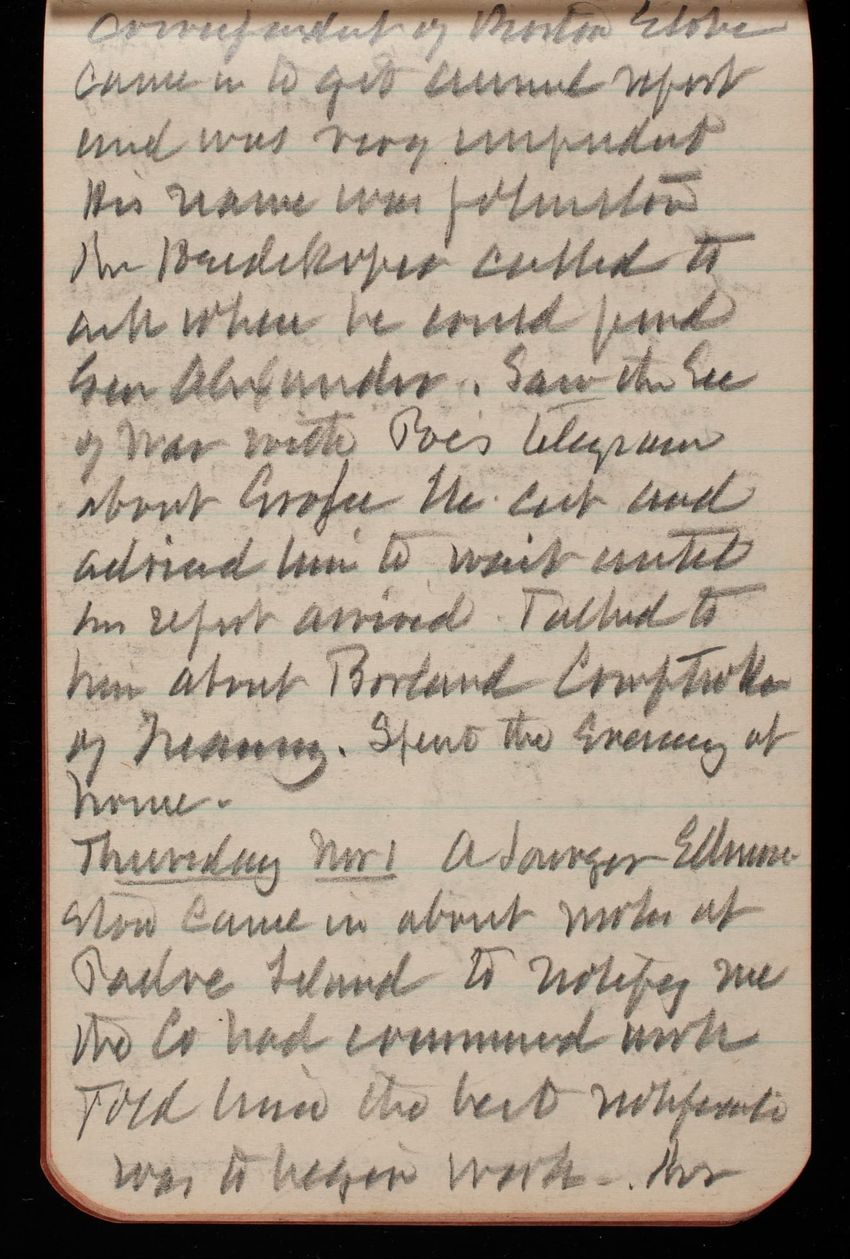 correspondent of Boston Globe
came in to get annual report
and was very impudent
His name was Johnston
Mr called to
ask where he could find
Gen Alexander. Saw the Sec
of War with Poe's telegram
about He and
advised him to wait until
his report arrived. Talked to
him about Borland Comptroller
of Treasury. Spent the Evening at
home.
Thursday Nov 1 A
came in about works at
Padre Island to notify me
the Co had commenced work
Told him the best notification
was to begin work. Mr